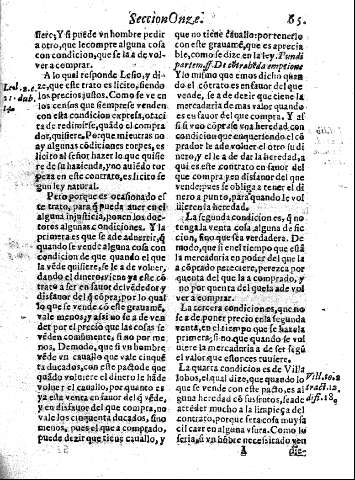 Seccion Onze. 85.
siere, Y si puede vn hombre pedir
a otro, que le compre alguna cosa
con condicion, que se la a de vol-
ver a comprar.
A lo qual responde Lesio, y di-
ze, que este trato es licito, siendo
los precios justos. Como se ve en
los censos que siempre se venden
con esta condicion expresa, o taci-
ta de redimirse, quãdo el compra
dor, quisiere. Porque mientras no
ay algunas cõdiciones torpes, es
licito al señor hazer lo que quisie
re de su hazienda, y no auiẽdo tor
peza en este contrato, es licito se
gun ley natural.
Pero porque es ocasionado es
te trato, para q̃ pueda auer en el
alguna injusticia, ponen los doc-
tores algunas condiciones. Y la
primera es que se a de aduertir, q̃
quando se vende alguna cosa con
condicion de que quando el que
la vẽde quisiere, se le a de volver,
dando el dinero si no es ya este cõ
trato a ser en fauor del vẽdedor y
disfauor del q̃ cõpra; por lo qual
lo que se vende cõ este grauamẽ,
vale menos, y assi no se a de ven
der por el precio que las cosas se
vẽden commẽnte, si no por me
nos. Demodo, que si vn hombre
vẽde vn cauallo que vale cinquẽ
ta ducados, con este pacto de que
quãdo voluiere el dinero le hã de
voluer el cauallo, por quanto es
ya esta venta en fauor del q̃ vẽde,
y en disfauor del que compra, no
vale los cinquenta ducados, sino
menos, pues el que a comprado,
puede dezir que tiene cauallo, y
que no tiene cauallo: por tenerlo
con este grauamẽ, que es aprecia
ble, como se dize en la ley. Fundi
partem ff. De cõtrahẽda emptione
Y lo mismo que emos dicho quan
do el cõtrato es en fauor del que
vende, se a de dezir que tiene la
mercaduria de mas valor quando
es en fauor del que compra. Y as
si si vno cõpra se vna heredad, con
condicion que en queriendo el cõ
prador le a de voluer el otro su di
nero, y el le a de dar la heredad, a
qui es este contrato en fauor del
que compra y en disfauor del que
vende; pues se obliga a tener el di
nero a punto, para quando le vol
uieren la heredad.
La segunda condicion es, q̃ no
tenga la venta cosa alguna de fic
cion, sino que sea verdadera. De
modo, que si en el tiempo que esta
la mercaduria en poder del que la
a cõprado pereciere, perezca por
quenta del que la a comprado, y
no por quenta del que la a de vol
ver a comprar.
La tercera condicion es, que no
se a de poner precio en la segunda
venta, en el tiempo que se haze la
primera; si no que quando se vol
uiere la mercaduria a de ser segũ
el valor que entonces tuuiere.
La quarta condicion es de Villa
lobos, el qual dize, que quando lo
que se vende con este pacto, es al
guna heredad cõ sus frutos, se a de
atẽder mucho a la limpieça del
contrato, porque se ia cosa muy fa
cil caer en alguna vsura. Como lo
seria, si vn hõbre necesitado ven
A die-